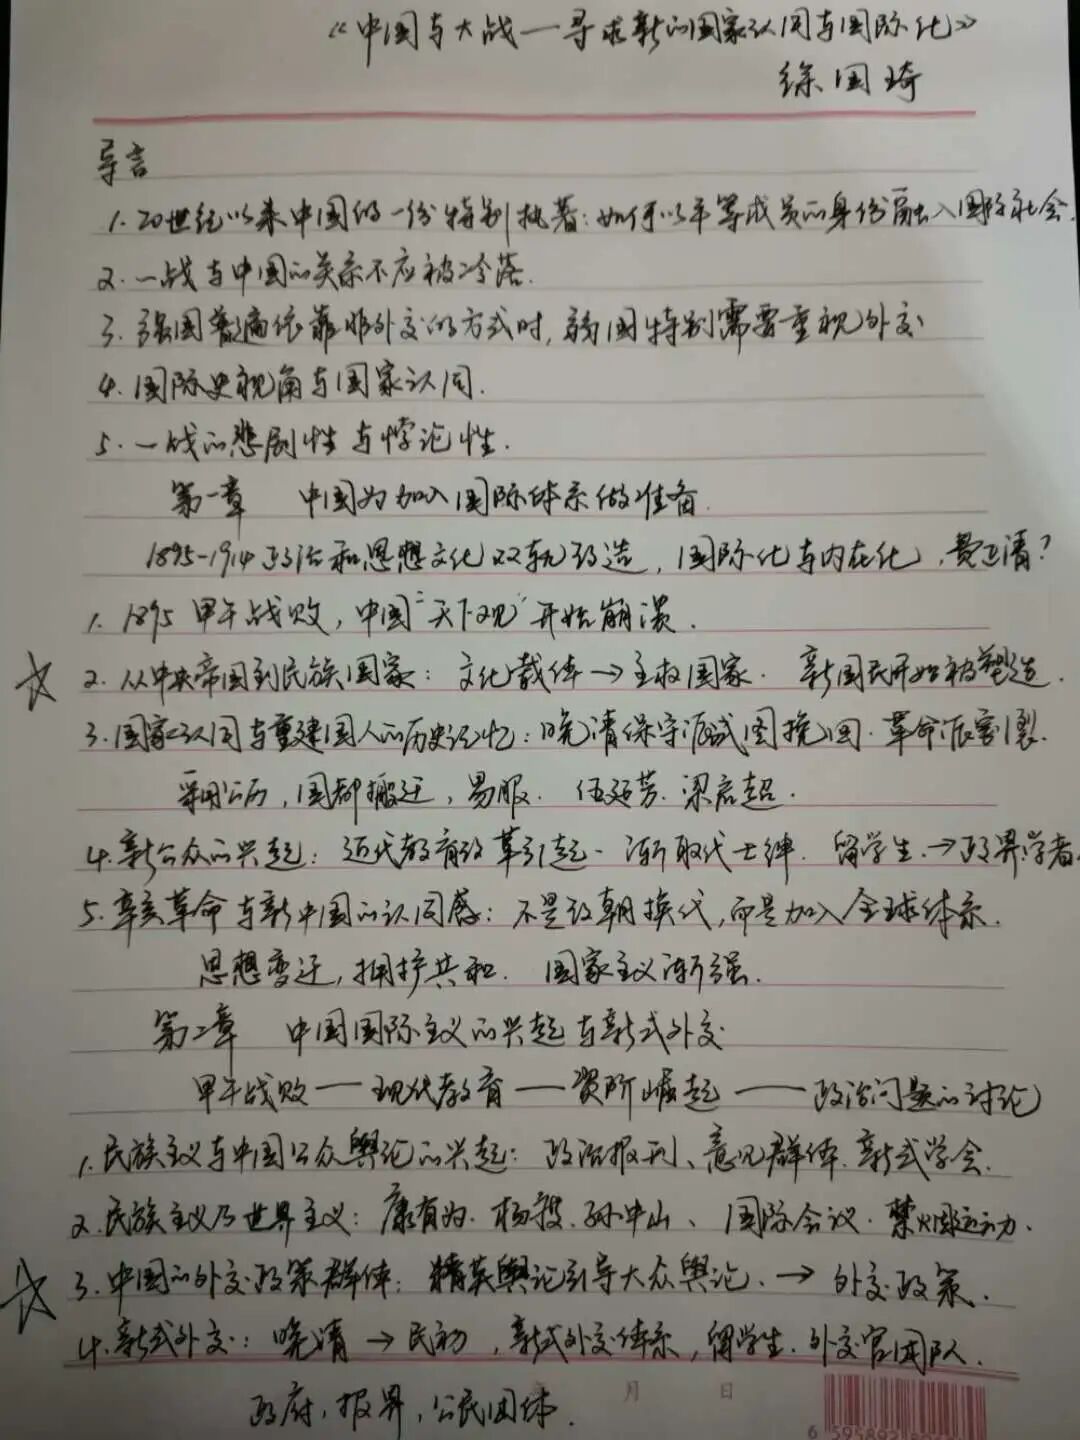 《中国与大战—寻求新的国家认同与国际化》
徐国琦
导言
1. 20世纪以来中国的一份特别执着:如何以平等成员的身份融入国际社会.
2. 一战与中国的关系不应被冷落.
3. 强国普遍依靠非外交的方式时,弱国特别需要重视外交
4. 国际史视角与国家认同.
5. 一战的悲剧性与悖论性.
第一章 中国为加入国际体系做准备.
1895-1914政治和思想文化双轨改造,国际化与内在化,费正清?
1. 1895 甲午战败,中国"天下观"开始崩溃.
☆ 2. 从中央帝国到民族国家: 文化载体→主权国家. 新国民开始被塑造.
3. 国家认同与重建国人的历史记忆:晚清保守派试图挽回.革命派割裂.
采用公历,国都搬迁,易服. 伍廷芳.梁启超.
4. 新公众的兴起: 近代教育改革引起. 渐取代士绅. 留学生.→政界学者.
5. 辛亥革命与新中国的认同感: 不是改朝换代,而是加入全球体系.
思想变迁,拥护共和. 国家主义渐强.
第二章 中国国际主义的兴起与新式外交
甲午战败——现代教育——资阶崛起——政治问题的讨论
1. 民族主义与中国公众舆论的兴起: 政治报刊、意见群体.新式学会.
2. 民族主义乃世界主义: 康有为.杨度.孙中山、国际会议.禁烟运动.
☆ 3. 中国的外交政策群体: 精英舆论引导大众舆论.→外交政策.
4. 新式外交: 晚清→民初,新式外交体系,留学生.外交官团队.
政府,报界,公民团体.
月 日